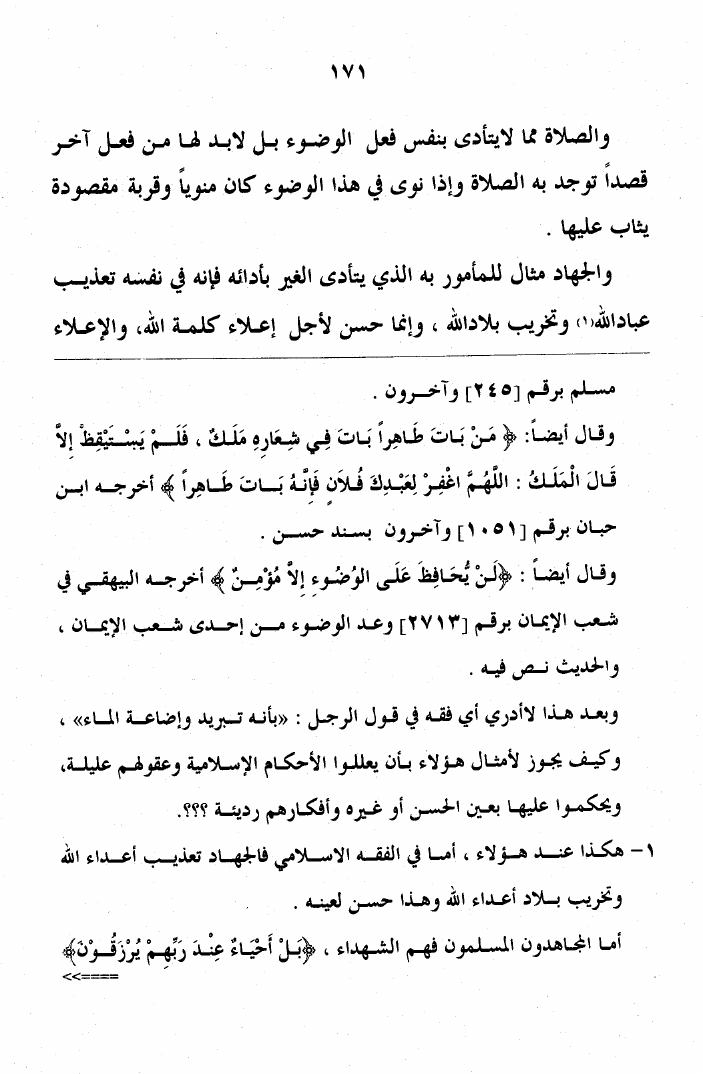 ١٧١
والصلاة مما لايتأدى بنفس فعل الوضوء بل لابد لها من فعل آخر
قصداً توجد به الصلاة وإذا نوى في هذا الوضوء كان منوياً وقربة مقصودة
يثاب عليها .
والجهاد مثال للمأمور به الذي يتأدى الغير بأدائه فإنه في نفسه تعذيب
عبادالله(١) وتخريب بلادالله ، وإنما حسن لأجل إعلاء كلمة الله، والإعلاء
مسلم برقم [٢٤٥] وآخرون .
وقال أيضاً: ﴿ مَنْ بَاتَ طَاهِراً بَاتَ فِي شِعَارِهِ مَلَكٌ ، فَلَمْ يَسْتَيْقِظْ إِلاَّ
قَالَ الْمَلَكُ : اللَّهُمَّ اغْفِرْ لِعَبْدِكَ فُلاَنٍ فَإِنَّهُ بَاتَ طَاهِراً ﴾ أخرجه ابن
حبان برقم [١٠٥١] وآخرون بسند حسن .
وقال أيضاً : ﴿لَنْ يُّحَافِظَ عَلَى الوُضُوءِ إِلاَّ مُؤْمِنٌ ﴾ أخرجه البيهقي في
شعب الإيمان برقم [٢٧١٣] وعد الوضوء من إحدى شعب الإيمان ،
والحديث نص فيه .
وبعد هذا لاأدري أي فقه في قول الرجل : «بأنه تبريد وإضاعة الماء» ،
وكيف يجوز لأمثال هؤلاء بأن يعللوا الأحكام الإسلامية وعقولهم عليلة،
ويحكموا عليها بعين الحسن أو غيره وأفكارهم رديئة ؟؟؟.
١- هكذا عند هؤلاء ، أما في الفقه الاسلامي فالجهاد تعذيب أعداء الله
وتخريب بلاد أعداء الله وهذا حسن لعينه .
أما المجاهدون المسلمون فهم الشهداء ، ﴿بَلْ أَحْيَاءٌ عِنْدَ رَبِّهِمْ يُرْزَقُوْنَ﴾
<<====